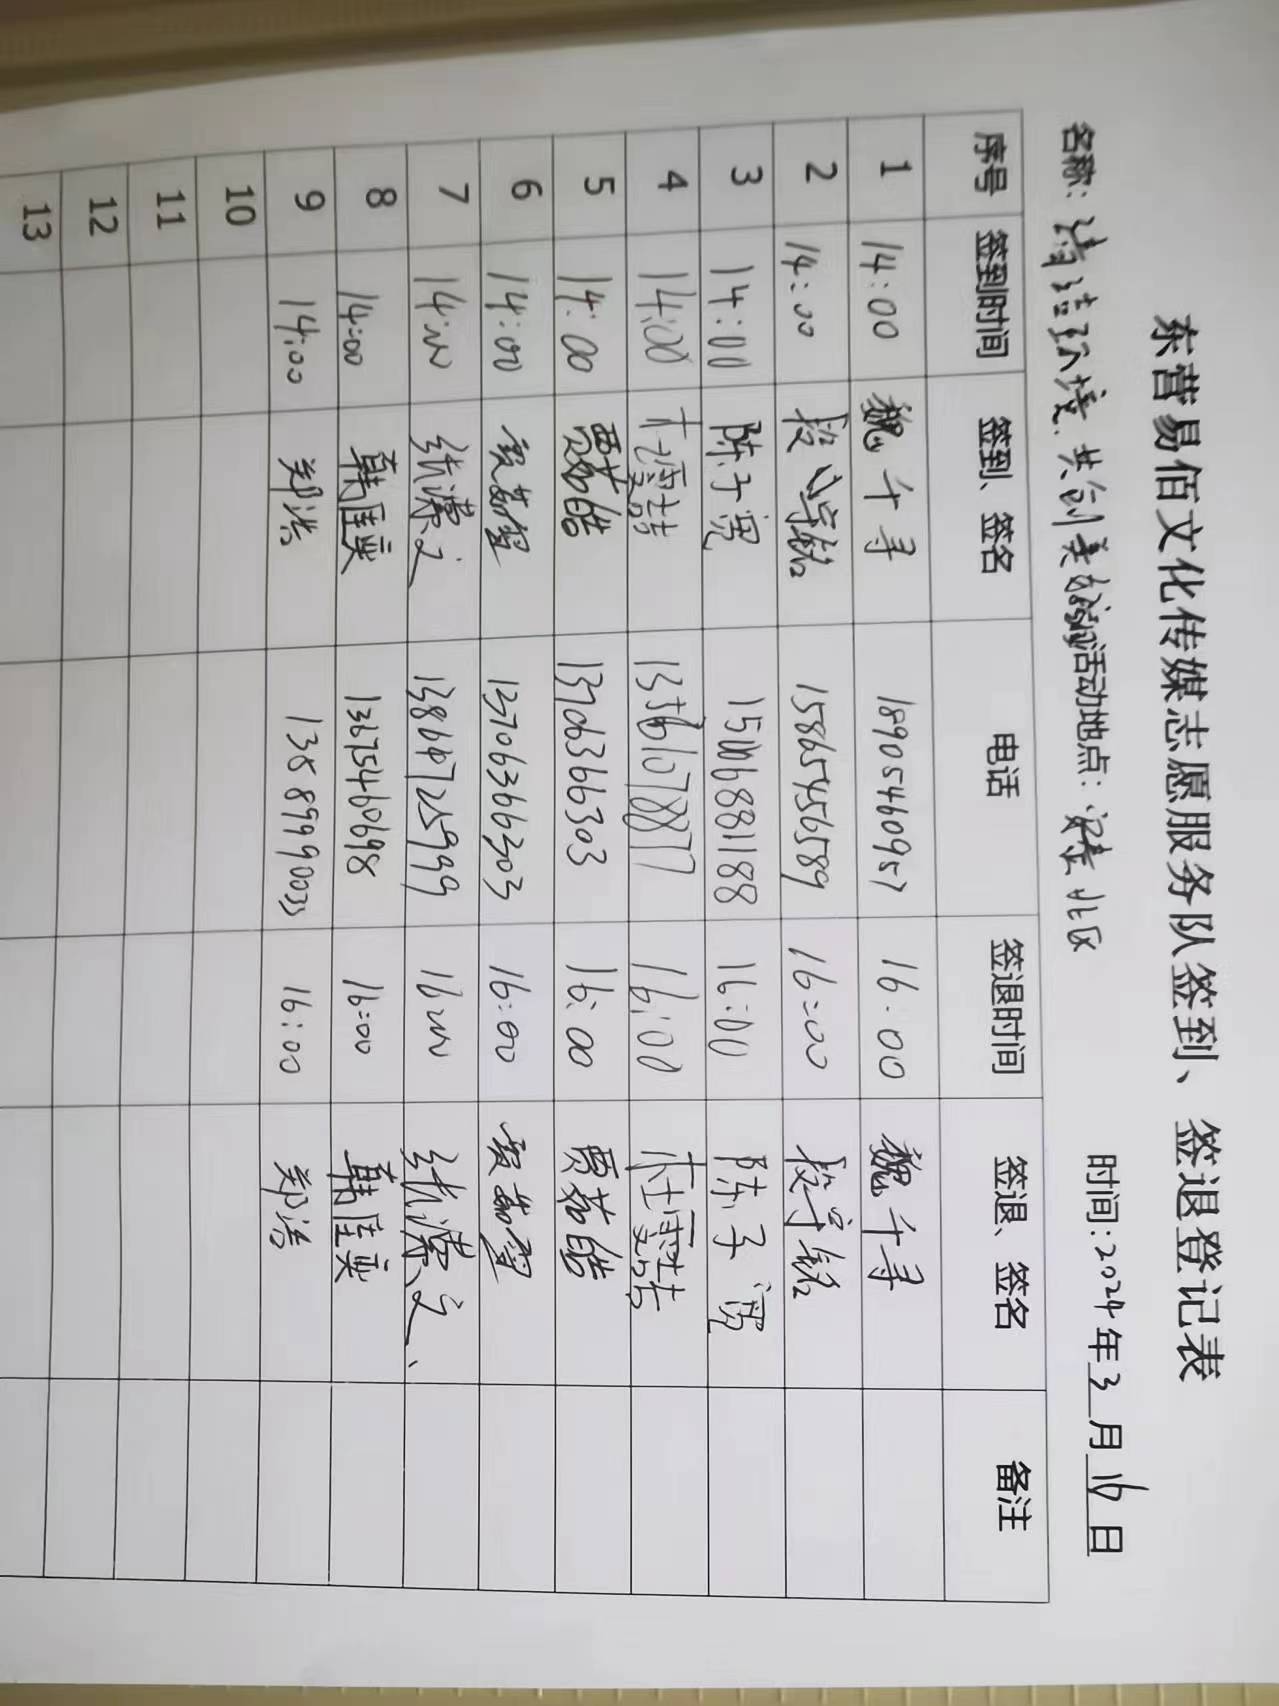 东营易佰文化传媒志愿服务队签到、签退登记表
名称：清洁环境.共创美好 活动地点： 北区 时间：2024年3月16日
序号 签到时间 签到、签名 电话 签退时间 签退、签名 备注
1 14:00 魏千寻 18905460957 16:00 魏千寻
2 14:00 段宁铭 15865456589 16:00 段宁铭
3 14:00 陈子 15006881188 16:00 陈子
4 14:00 16:00
5 14:00 贾茹皓 13706366303 16:00 贾茹皓
6 14:00 贾茹玺 13706366303 16:00 贾茹玺
7 14:00 张潆文 16:00 张潆文
8 14:00 韩匡奕 13675460698 16:00 韩匡奕
9 14:00 郑浩 16:00 郑浩
10
11
12
13